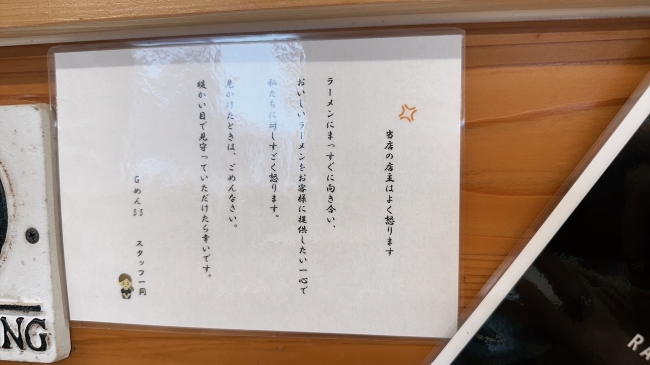 当店の店主はよく怒ります
ラーメンにまっすぐに向き合い、
おいしいラーメンをお客様に提供したい一心で
私たちに対しすごく怒ります。
見かけたときは、ごめんなさい。
暖かい目で見守っていただけたら幸いです。
Gめん55 スタッフ一同
NG
RA